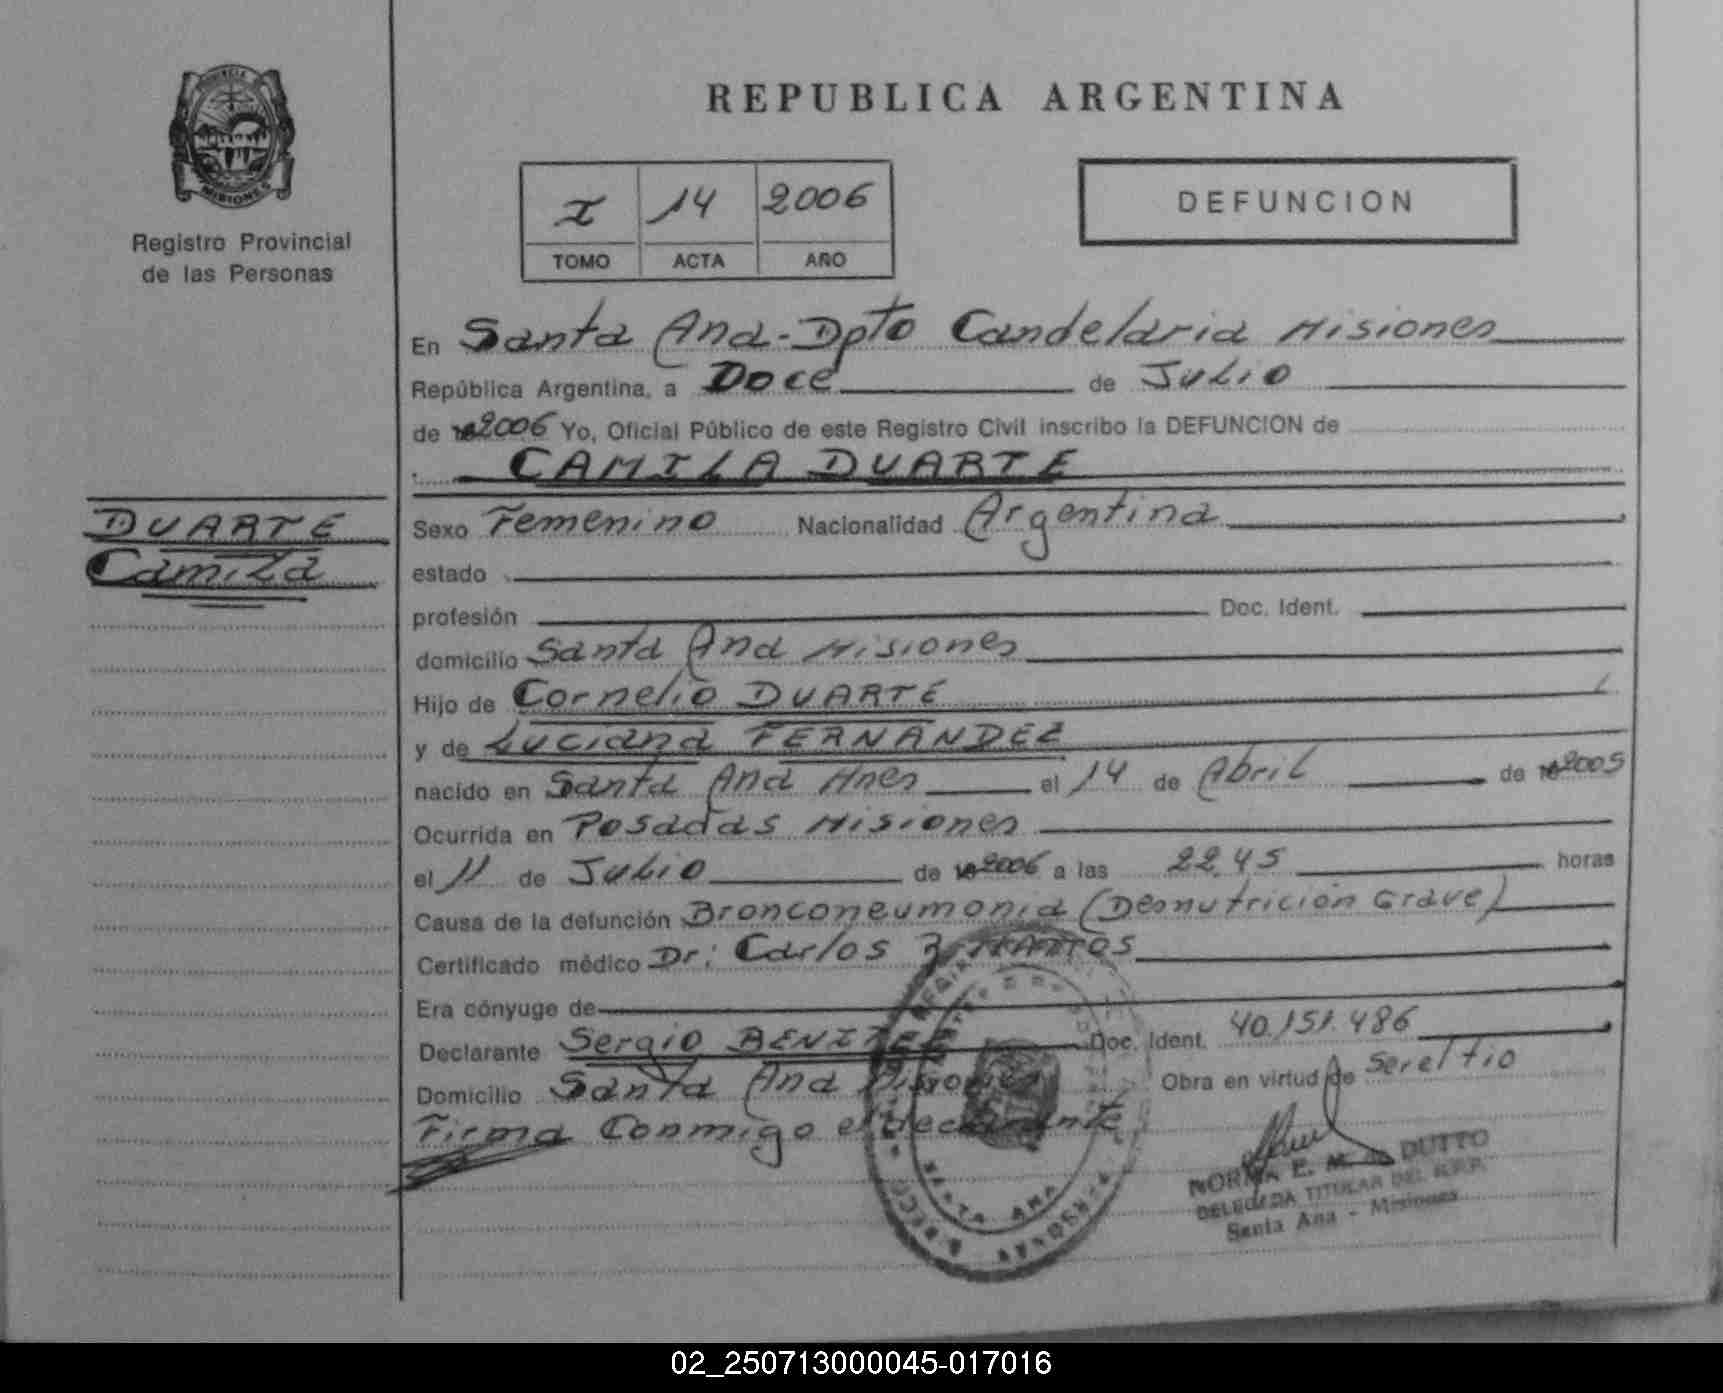 PROVINCIA
MISIONES
Registro Provincial
de las Personas
REPUBLICA ARGENTINA
I 14 2006
TOMO ACTA AÑO
DEFUNCION
En Santa Ana - Dpto Candelaria Misiones
República Argentina, a Doce de Julio
de 2006 Yo, Oficial Público de este Registro Civil inscribo la DEFUNCION de
CAMILA DUARTE
DUARTE
Camila
Sexo Femenino Nacionalidad Argentina
estado
profesión Doc. Ident.
domicilio Santa Ana Misiones
Hijo de Cornelio DUARTE
y de Luciana FERNANDEZ
nacido en Santa Ana Mnes el 14 de Abril de 2005
Ocurrida en Posadas Misiones
el 11 de Julio de 2006 a las 22,45 horas
Causa de la defunción Bronconeumonia (Desnutrición Grave)
Certificado médico Dr: Carlos MATTOS
Era cónyuge de
Declarante Sergio BENITEZ Doc. Ident. 40.151.486
Domicilio Santa Ana Misiones Obra en virtud de Ser el tio
Firma Conmigo el declarante
SANTA ANA
NORMA E. DUTTO
DELEGADA TITULAR DEL R.P.P.
Santa Ana - Misiones
02_250713000045-017016